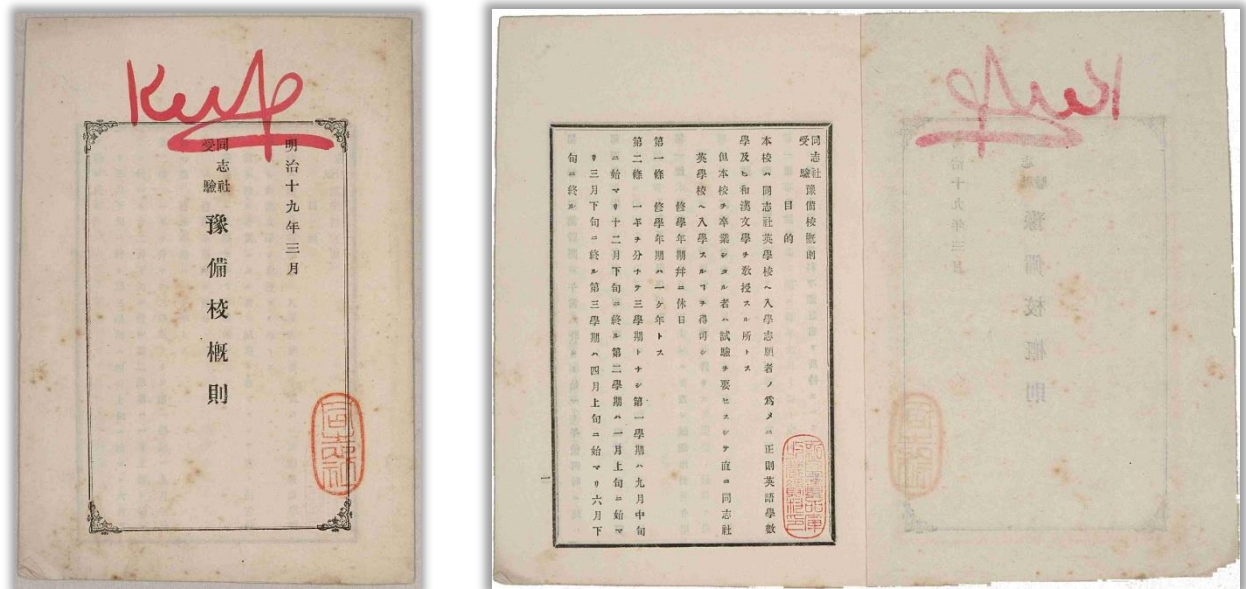 Keep
明治十九年三月
同志社
受驗
豫備校概則
同志社
同志社
受驗
豫備校概則
目的
本校ハ同志社英學校ヘ入學志願者ノ爲メニ正則英語學數
學及ヒ和漢文學ヲ教授スル所トス
但本校ヲ卒業シタル者ハ試驗ヲ要セスシテ直ニ同志社
英學校ヘ入學スルヿヲ得可シ
第一條 修學年期幷ニ休日
第一條 修學年期ハ一ケ年トス
第二條 一年ヲ分チテ三學期トナシ第一學期ハ九月中旬
ニ始マリ十二月下旬ニ終ル第二學期ハ一月上旬ニ始マ
リ三月下旬ニ終ル第三學期ハ四月上旬ニ始マリ六月下
旬ニ終ル
一